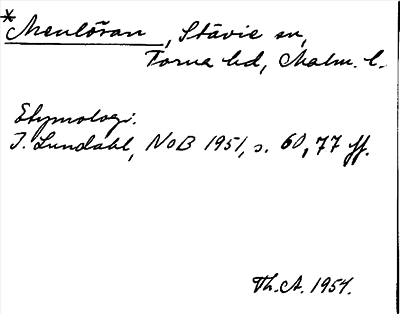 *Menlöran, Stävie sn,
Torna hd, Malm. l.
Etymologi.
I. Lundahl, NoB 1951, s. 60, 77 ff.
Th.A. 1954.